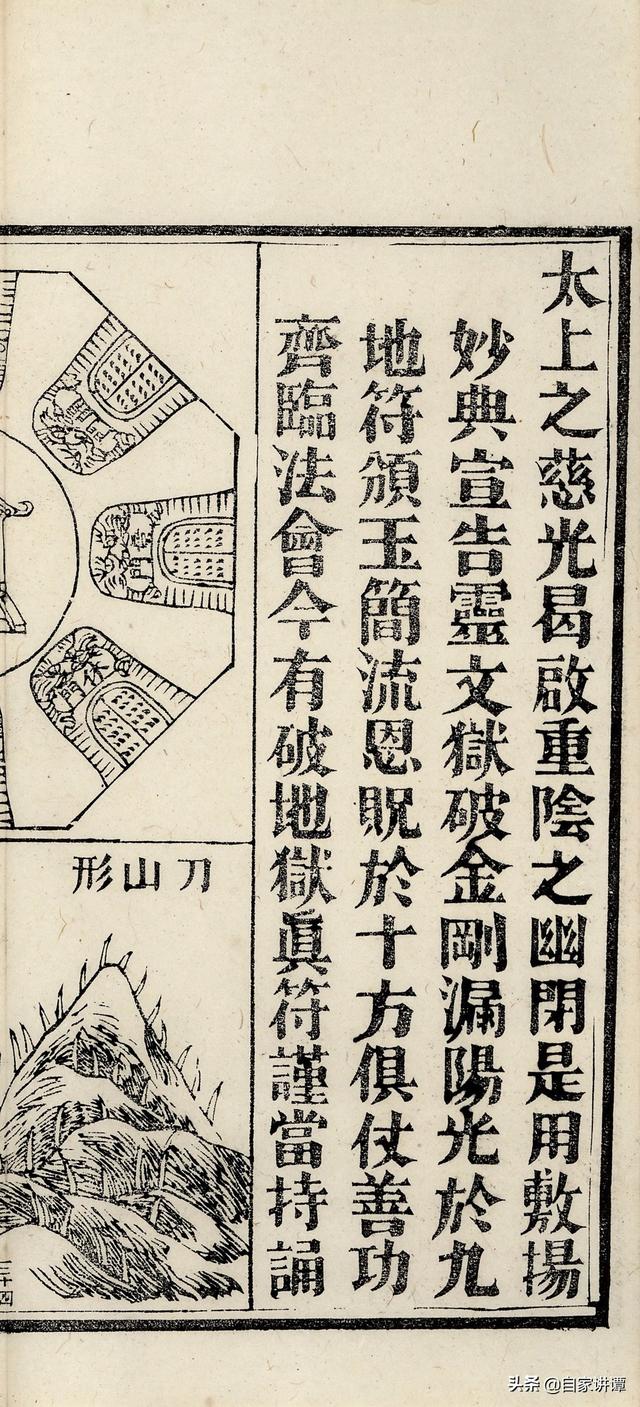 太上之慈光曷啟重陰之幽閉是用敷揚
妙典宣告靈文獄破金剛漏陽光於九
地符頒玉簡流恩貺於十方俱仗善功
齊臨法會今有破地獄眞符謹當持誦
刀山形
三十四
头条 @自家讲谭